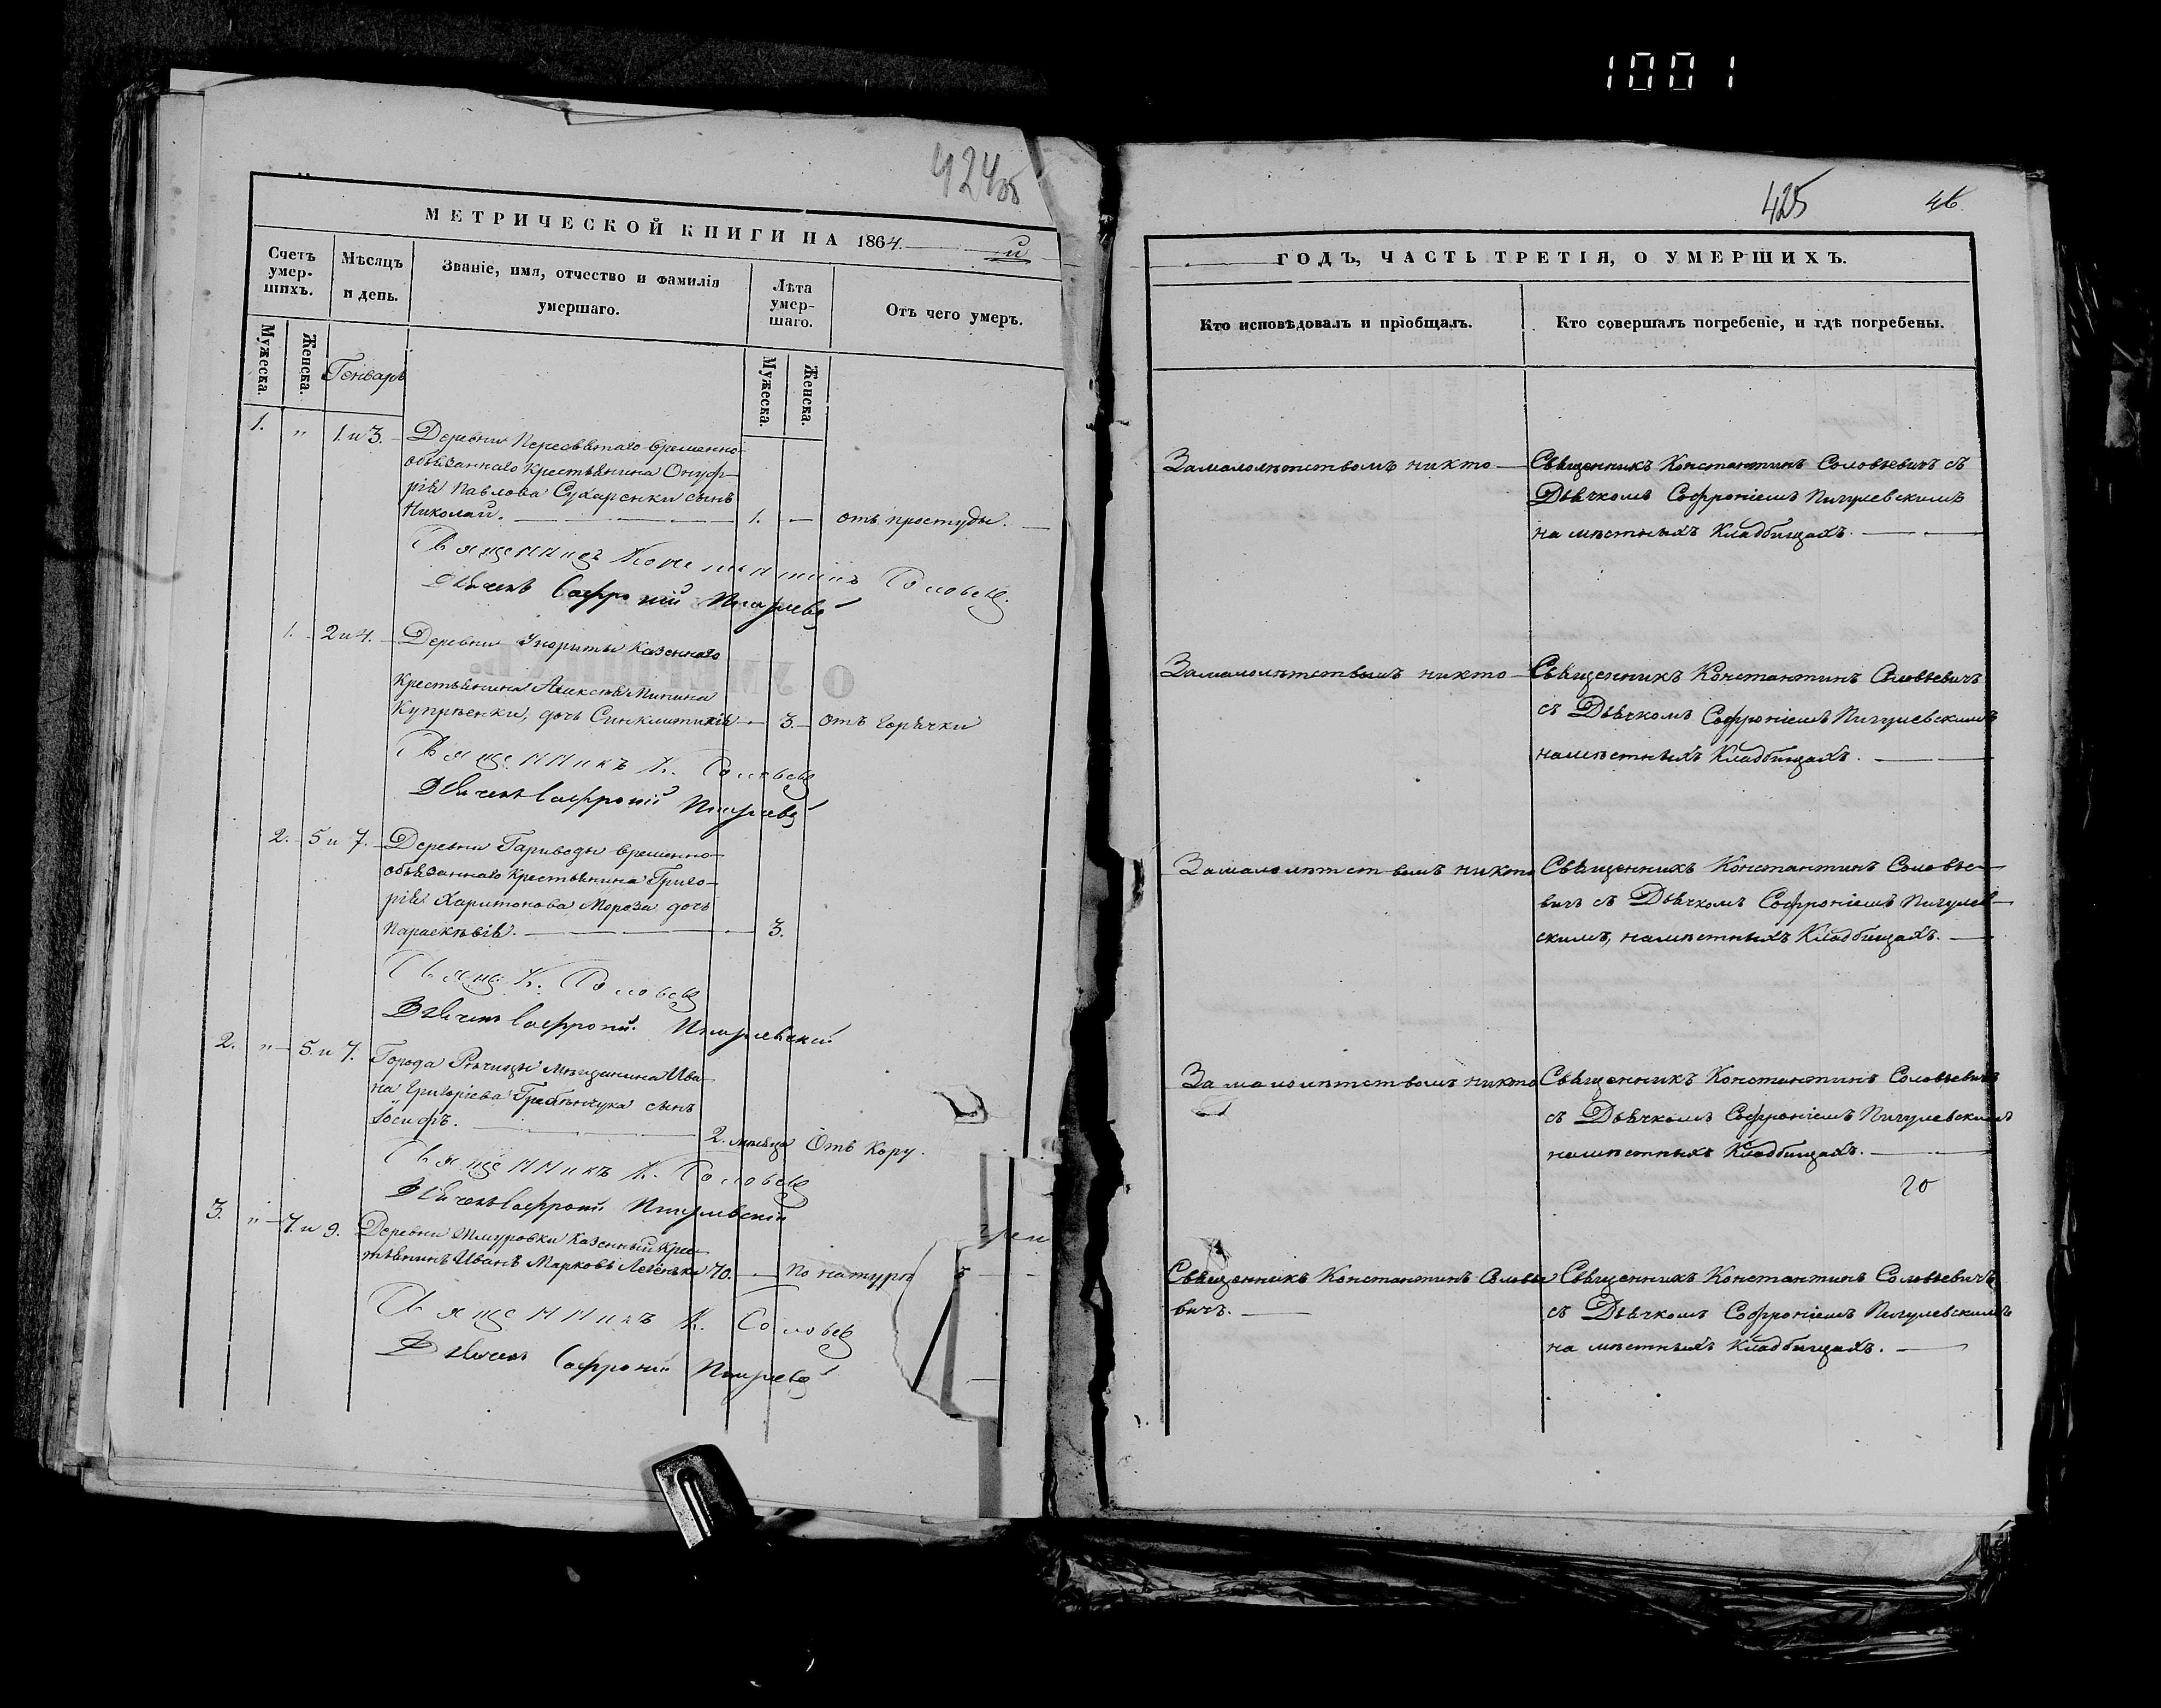 1001
424 об
МЕТРИЧЕСКОЙ КНИГИ НА 1864. й
Счетъ умер-шихъ.
Мѣсяцъ и день.
Званіе, имя, отчество и фамилія умершаго.
Лѣта умер-шаго.
Отъ чего умеръ.
Мужеска.
Женска.
Генварь
Мужеска.
Женска.
1. " 1. и 3. Деревни Пересвятаго временно-
обязаннаго Крестьянина Онуф-
рія Павлова Сухаренки сынъ
Николай. 1. — отъ простуды.
Священникъ Константинъ Соловьев
Дьячекъ Софроній Пигулев
1. 2 и 4. Деревни Казеннаго
Крестьянина Алексѣя Минина
Купрѣенки, дочь Синклитикія — 3. — отъ горячки
Священникъ К. Соловьев
Дьячекъ Софроній Пигулев
2. 5 и 7. Деревни Гариводы временно-
обязаннаго Крестьянина Григо-
рія Харитонова Мороза дочь
Параскѣвія. 3.
Свящ: К. Соловьев
Дьячекъ Софроній Пигулевскій
2. " 5. и 7. Города Рѣчицы Мѣщанина Ива-
на Григоріева Гребѣнчука сынъ
Іосифъ. 2. мѣсяца Отъ Кору.
Священникъ К. Соловьев
Дьячекъ Софроній Пигулевскій
3. " 7. и 9. Деревни Казенный Крес-
тьянинъ Иванъ Марковъ 70. — по натурѣ
Священникъ К. Соловьев
Дьячекъ Софроній Пигулев
425 46.
ГОДЪ, ЧАСТЬ ТРЕТІЯ, О УМЕРШИХЪ.
Кто исповѣдовалъ и пріобщалъ.
Кто совершалъ погребеніе, и гдѣ погребены.
Замалолѣтствомъ никто — Священникъ Константинъ Соловьевичъ съ
Дьячкомъ Софроніемъ Пигулевскимъ
на мѣстныхъ Кладбищахъ.
Замалолѣтствомъ никто — Священникъ Константинъ Соловьевичъ
съ Дьячкомъ Софроніемъ Пигулевскимъ
на мѣстныхъ Кладбищахъ.
Замалолѣтствомъ никто Священникъ Константинъ Соловье-
вичъ съ Дьячкомъ Софроніемъ Пигулев-
скимъ, на мѣстныхъ Кладбищахъ.
Замалолѣтствомъ никто Священникъ Константинъ Соловьевичъ
съ Дьячкомъ Софроніемъ Пигулевскимъ
на мѣстныхъ Кладбищахъ.
20
Священникъ Константинъ Соловье Священникъ Константинъ Соловьевичъ
вичъ. съ Дьячкомъ Софроніемъ Пигулевскимъ
на мѣстныхъ Кладбищахъ.